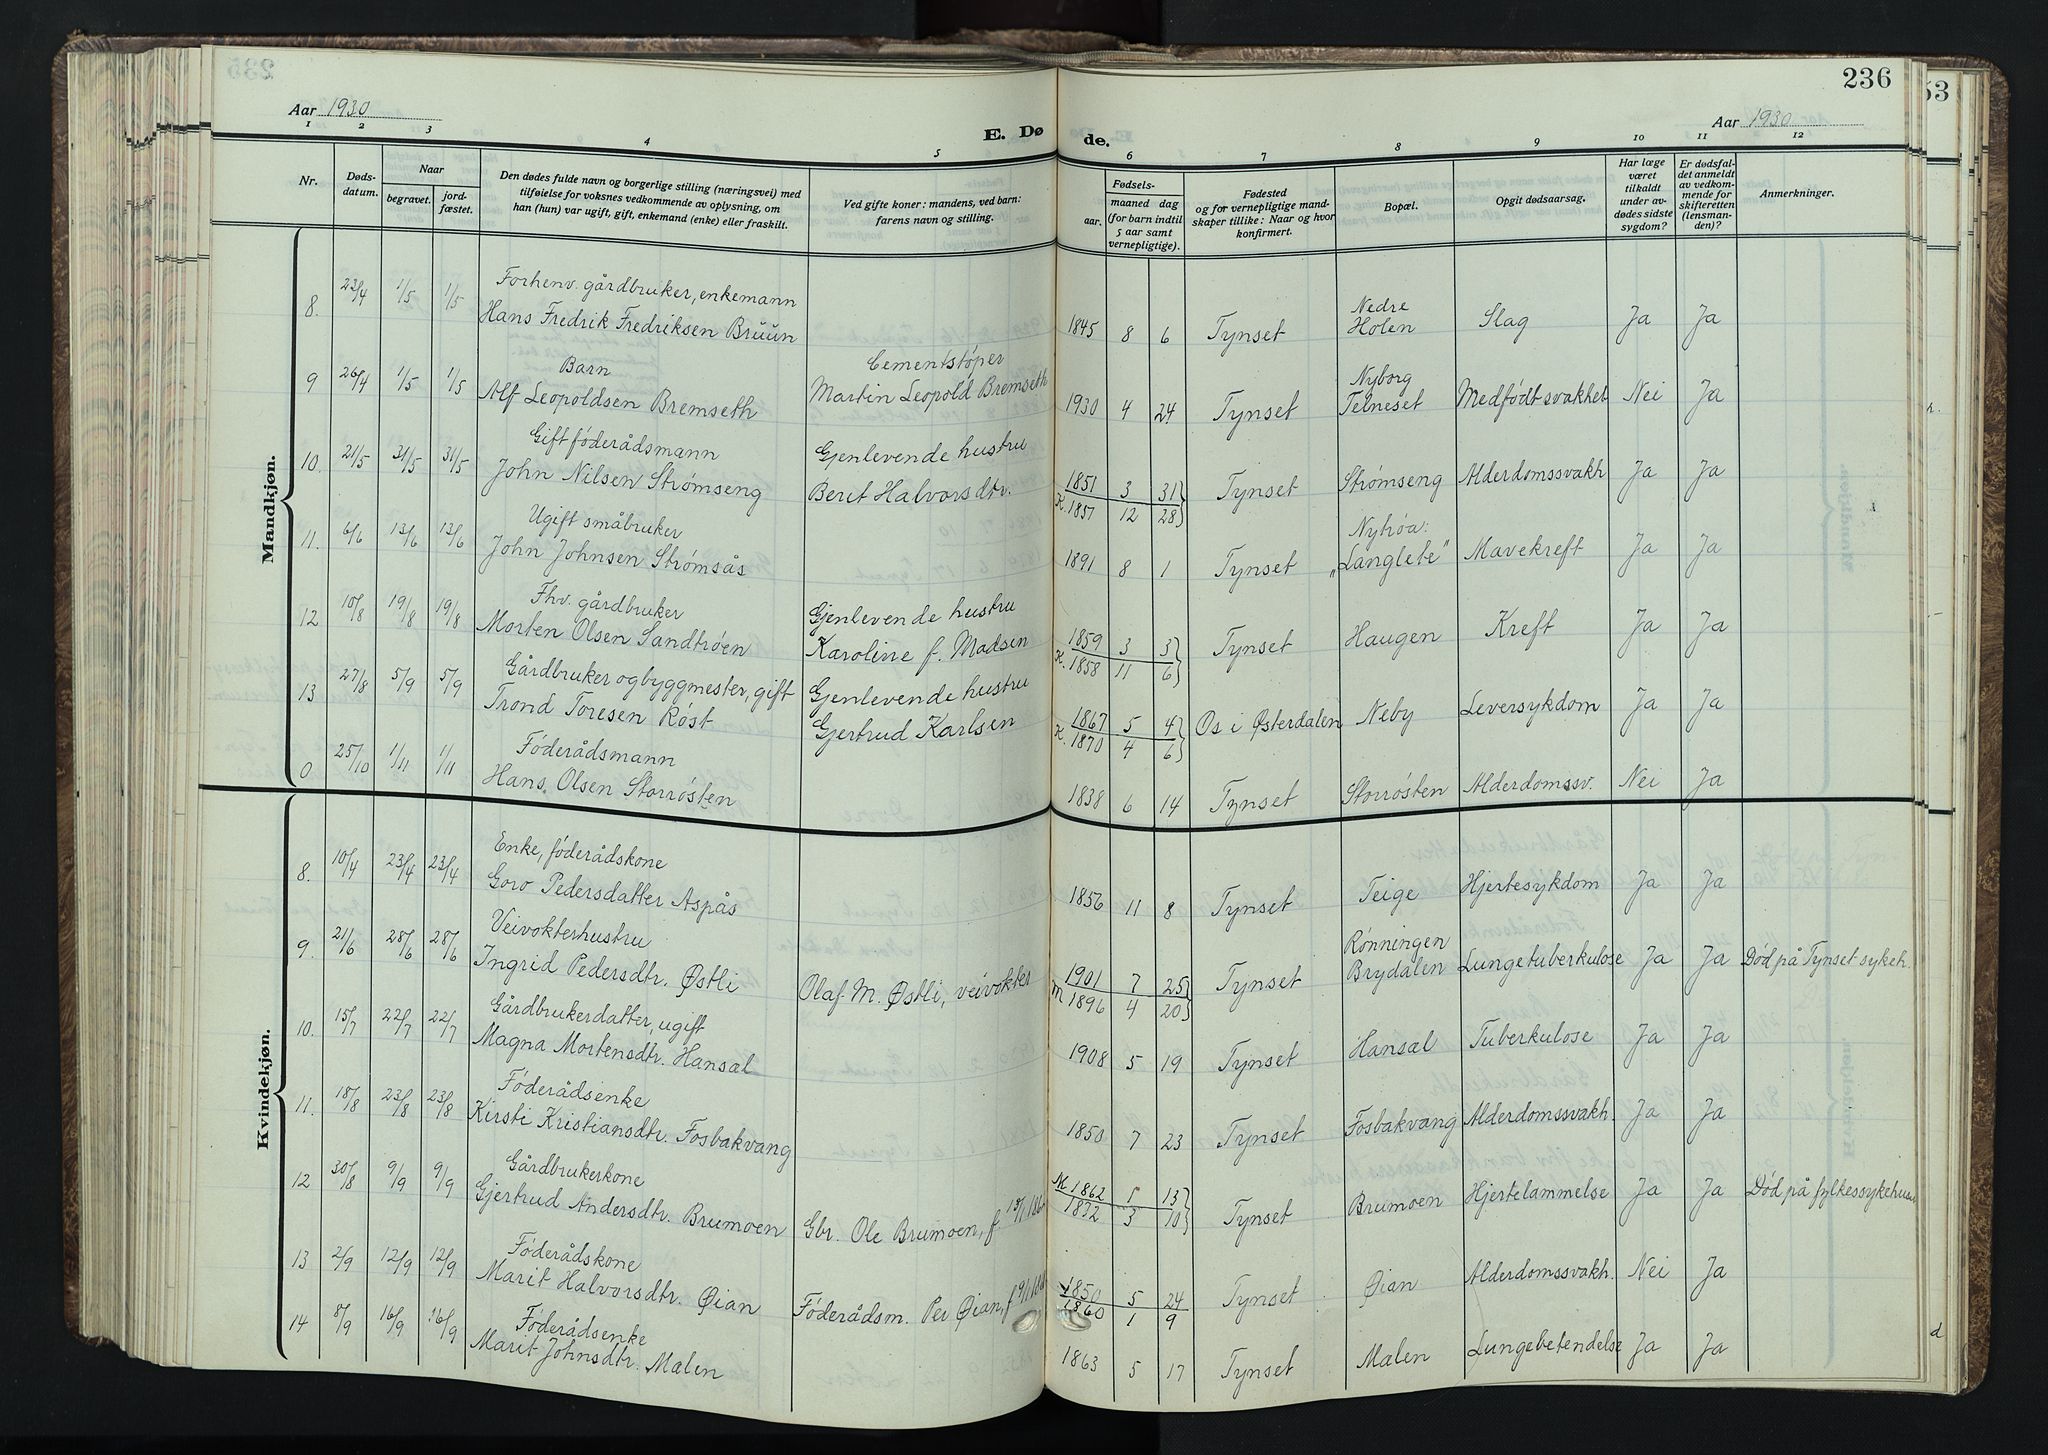 236
Aar 1930
Aar 1930
E. Døde.
1 2 3 4 5 6 7 8 9 10 11 12
Nr.
Døds-
datum.
Naar
begravet.
jord-
fæstet.
Den dødes fulde navn og borgerlige stilling (næringsvei) med
tilføielse for voksnes vedkommende av oplysning, om
han (hun) var ugift, gift, enkemand (enke) eller fraskilt.
Ved gifte koner: mandens, ved barn:
farens navn og stilling.
Fødsels-
aar.
maaned dag
(for barn indtil
5 aar samt
vernepligtige).
Fødested
og for vernepligtige mand-
skaper tillike: Naar og hvor
konfirmert.
Bopæl.
Opgit dødsaarsag.
Har læge
været
tilkaldt
under av-
dødes sidste
sygdom?
Er dødsfal-
det anmeldt
av vedkom-
mende for
skifteretten
(lensman-
den)?
Anmerkninger.
Mandkjøn.
Forhenv. gårdbruker, enkemann
8. 23/4 1/5 1/5 Hans Fredrik Fredriksen Bruun 1845 8 6 Tynset Nedre Holen Slag Ja Ja
Barn Cementstøper
9 26/4 1/5 1/5 Alf Leopoldsen Bremseth Martin Leopold Bremseth 1930 4 24 Tynset Nyborg Telneset Medfødt svakhet Nei Ja
Gift føderådsmann Gjenlevende hustru
10. 21/5 31/5 31/5 John Nilsen Strømseng Berit Halvorsdtr. 1851 3 31 Tynset Strømseng Alderdomssvakh Ja Ja
K. 1857 12 28
Ugift småbruker
11. 6/6 13/6 13/6 John Johnsen Strømsås 1891 8 1 Tynset Nytrøa: „Langlete" Mavekreft Ja Ja
Fhv. gårdbruker Gjenlevende hustru
12 10/8 19/8 19/8 Morten Olsen Sandtrøen Karoline f. Madsen 1859 3 3 Tynset Haugen Kreft Ja Ja
K. 1858 11 6
Gårdbruker og byggmester, gift Gjenlevende hustru
13 27/8 5/9 5/9 Trond Toresen Røst Gjertrud Karlsen 1867 5 4 Os i Østerdalen Neby Leversykdom Ja Ja
K. 1870 4 6
Føderådsmann
0 25/10 1/11 1/11 Hans Olsen Storrøsten 1838 6 14 Tynset Storrøsten Alderdomssv. Nei Ja
Kvindekjøn.
Enke, føderådskone
8. 10/4 23/4 23/4 Goro Pedersdatter Aspås 1856 11 8 Tynset Teige Hjertesykdom Ja Ja
Veivokterhustru
9. 21/6 28/6 28/6 Ingrid Pedersdtr. Østli Olaf M. Østli, veivokter 1901 7 25 Tynset Rønningen Brydalen Lungetuberkulose Ja Ja Død på Tynset sykeh.
M 1896 4 20
Gårdbrukerdatter, ugift
10. 15/7 22/7 22/7 Magna Mortensdtr. Hansæl 1908 5 19 Tynset Hansæl Tuberkulose Ja Ja
Føderådsenke
11. 18/8 23/8 23/8 Kirsti Kristiansdtr. Fosbakvang 1850 7 23 Tynset Fosbakvang Alderdomssvakh. Ja Ja
Gårdbrukerkone
12 30/8 9/9 9/9 Gjertrud Andersdtr. Brumoen Gbr. Ole Brumoen, f M. 1862 1 13 Tynset Brumoen Hjertelammelse Ja Ja Død på fylkessykehuset
1872 3 10
Føderådskone
13 2/9 12/9 12/9 Marit Halvorsdtr. Øian Føderådsm. Per Øian, f 1850 5 24 Tynset Øian Alderdomssvakh. Nei Ja
1860 1 9
Føderådsenke
14 8/9 16/9 16/9 Marit Johnsdtr. Malen 1863 5 17 Tynset Malen Lungebetendelse Ja Ja
53